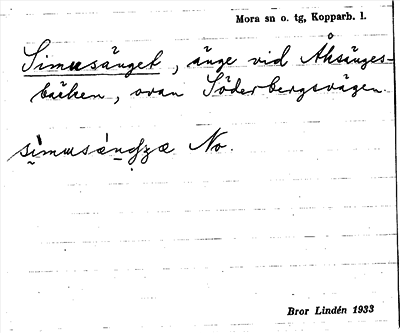 Mora sn o. tg, Kopparb. l.
Simusänget, änge vid Åksänges-
bäcken, ovan Söderbergsvägen.
No.
Bror Lindén 1933